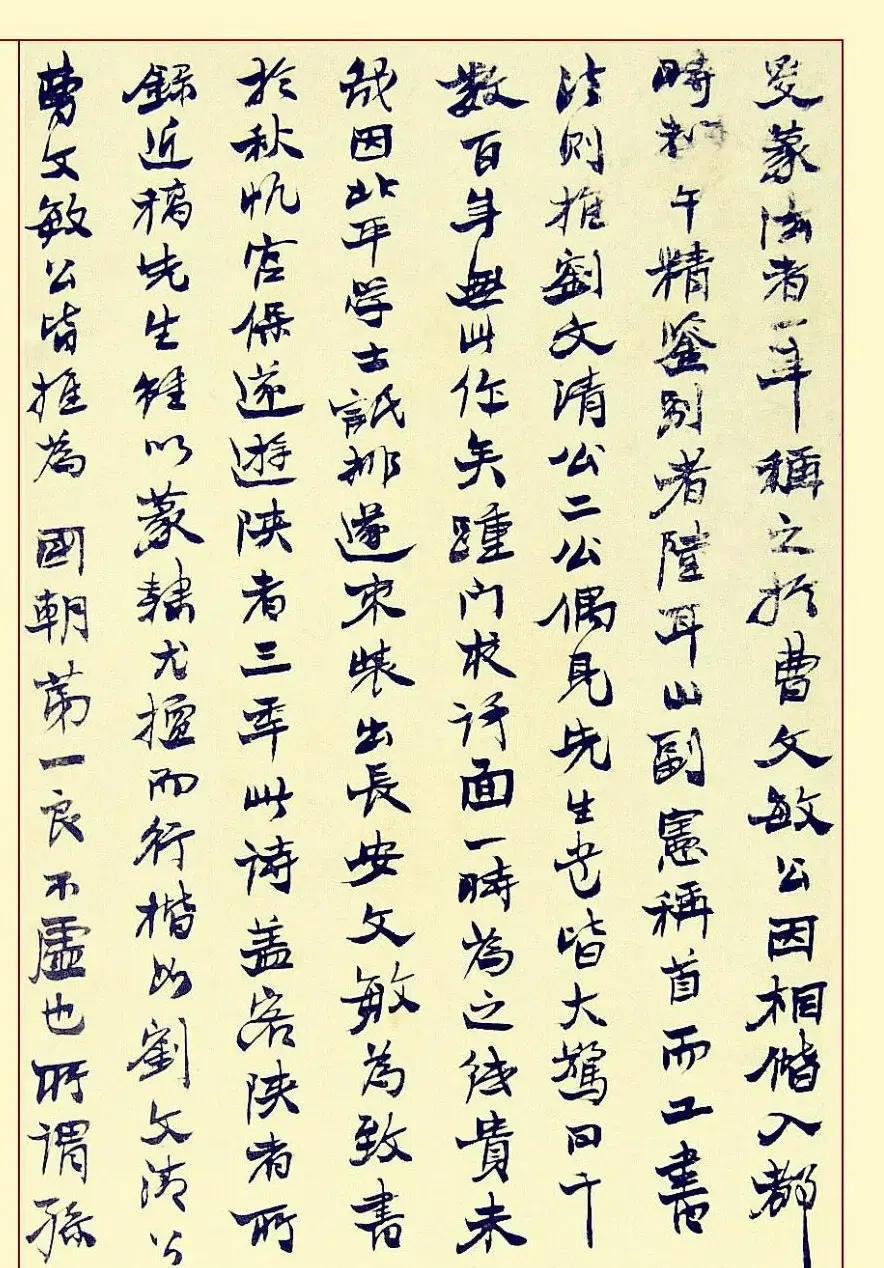 受篆法者一年稱之於曹文敏公因相偕入都
時都午精鑒別者陸耳山副憲稱首而工書
法則推劉文清公二公偶見先生書皆大驚曰千
數百年無此作矣踵門枉訪面一時為之傾貴未
幾因北平學士詆排遂束裝出長安文敏為致書
於秋帆宮保遂遊陝者三年此詩蓋客陝者所
錄近稿先生雖以篆隸尤擅而行楷如劉文清公
曹文敏公皆推為 國朝第一良不虛也所謂孫